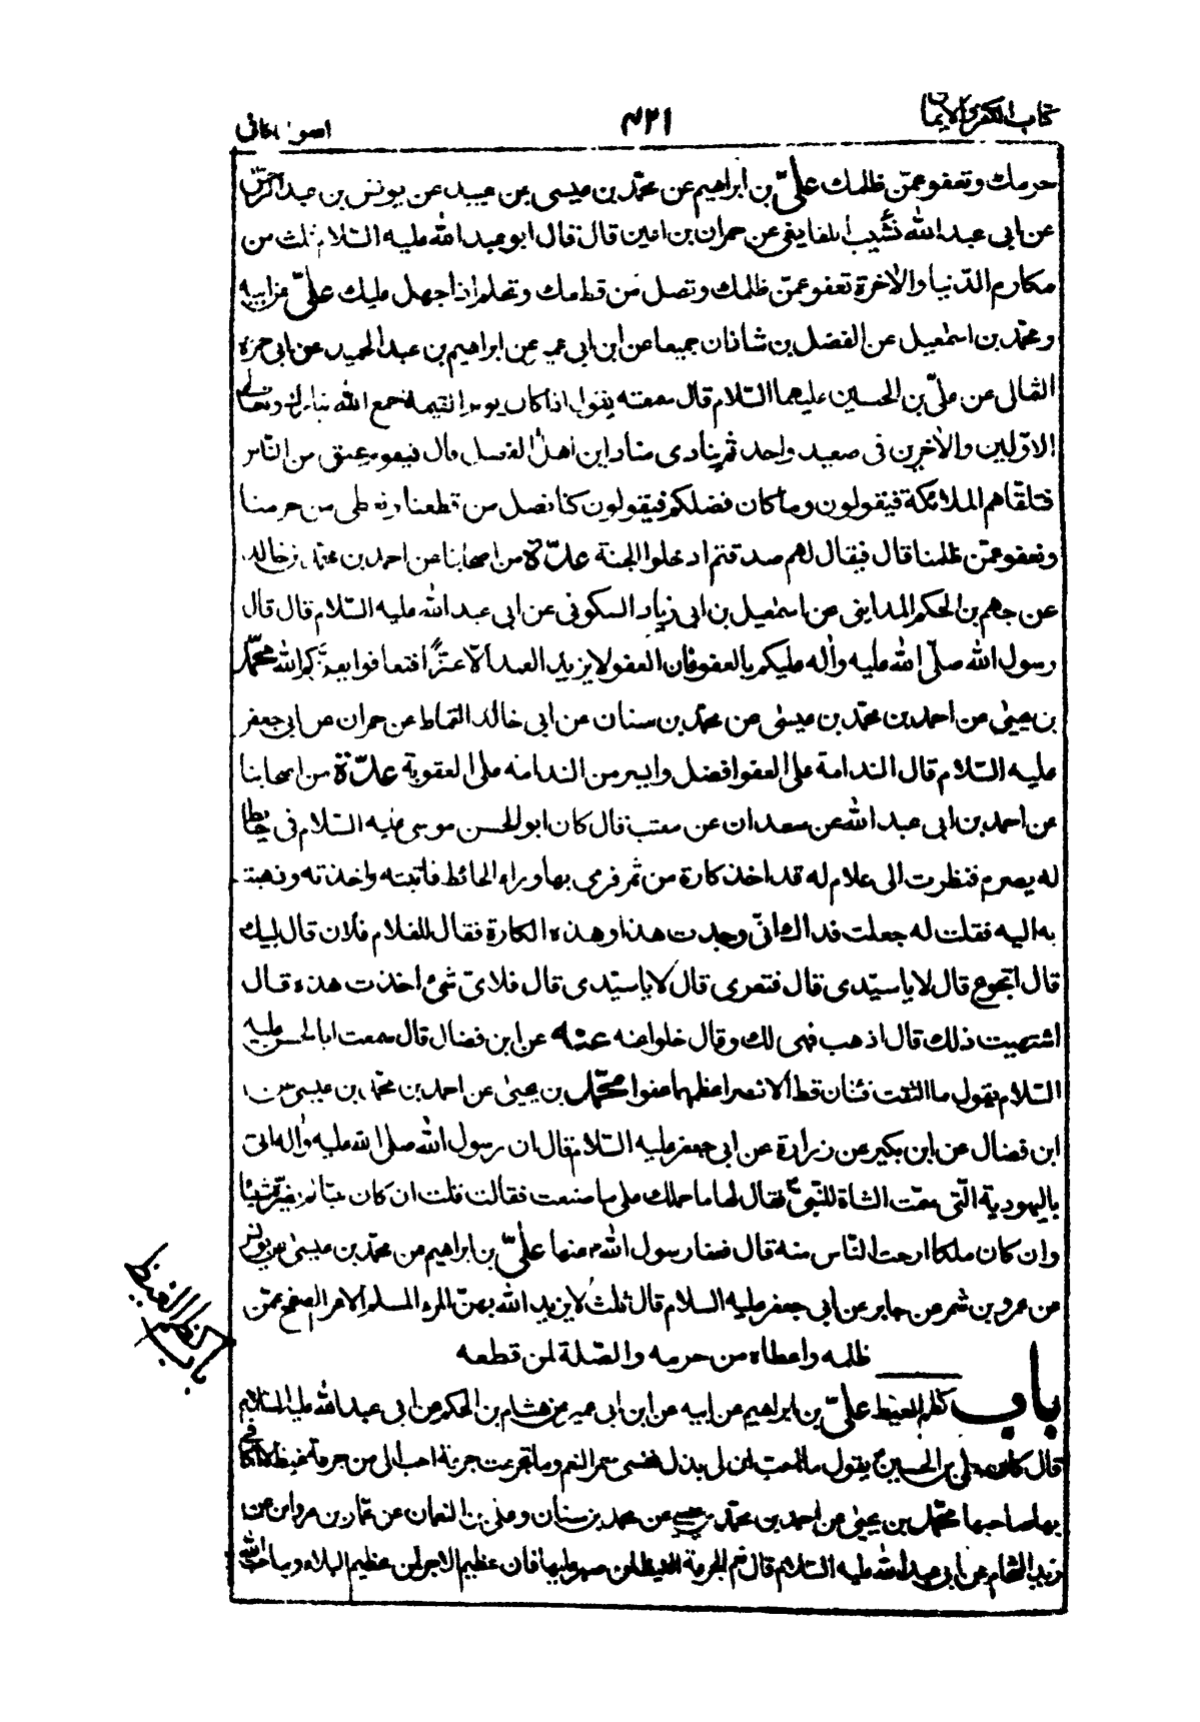 كتاب الكفر والايمان
٤٢١
اصول الكافى
حرمك وتعفو عمّن ظلمك علىّ بن ابراهيم عن محمّد بن عيسى بن عبيد عن يونس بن عبد الرحمن
عن ابى عبد الله نشيب اللفايفى عن حمران بن اعين قال قال ابو عبد الله عليه السّلام ثلث من
مكارم الدّنيا والاخرة تعفو عمّن ظلمك وتصل من قطعك وتحلم اذا جهل عليك علىّ عن ابيه
ومحمّد بن اسمعيل عن الفضل بن شاذان جميعا عن ابن ابى عمير عن ابراهيم بن عبد الحميد عن ابى حمزة
الثمالى عن علىّ بن الحسين عليهما السّلام قال سمعته يقول اذا كان يوم القيمة جمع الله تبارك وتعالى
الاوّلين والاخرين فى صعيد واحد ثم ينادى مناد اين اهل الفضل قال فيقوم عنق من النّاس
فتلقّاهم الملائكة فيقولون وما كان فضلكم فيقولون كنا نصل من قطعنا ونعطى من حرمنا
ونعفو عمّن ظلمنا قال فيقال لهم صدقتم ادخلوا الجنة عدّة من اصحابنا عن احمد بن محمّد بن خالد
عن جهم بن الحكم المداينى عن اسمعيل بن ابى زياد السكونى عن ابى عبد الله عليه السّلام قال قال
رسول الله صلّى الله عليه واله عليكم بالعفو فان العفو لا يزيد العبد الّا عزّا فتعافوا يعزّكم الله محمّد
بن يحيى عن احمد بن محمّد بن عيسى عن محمّد بن سنان عن ابى خالد القماط عن حمران عن ابى جعفر
عليه السّلام قال الندامة على العفو افضل وايسر من الندامة على العقوبة عدّة من اصحابنا
عن احمد بن ابى عبد الله عن سعدان عن معتب قال كان ابو الحسن موسى عليه السّلام فى حايط
له يصرم فنظرت الى غلام له قد اخذ كارة من تمر فرمى بها وراء الحائط فاتيته واخذته وذهبت
به اليه فقلت له جعلت فداك انّى وجدت هذا وهذه الكارة فقال للغلام فلان قال لبيك
قال اتجوع قال لا يا سيّدى قال فتعرى قال لا يا سيّدى قال فلاىّ شئ اخذت هذه قال
اشتهيت ذلك قال اذهب فهى لك وقال خلوا عنه عنه عن ابن فضال قال سمعت ابا الحسن عليه
السّلام يقول ما التقت فئتان قط الّا نصر اعظمهما عفوا محمّد بن يحيى عن احمد بن محمّد بن عيسى عن
ابن فضال عن ابن بكير عن زرارة عن ابى جعفر عليه السّلام قال ان رسول الله صلى الله عليه واله اتى
باليهودية الّتى سمّت الشاة للنّبىّ ص فقال لها ما حملك على ما صنعت فقالت قلت ان كان نبيّا لم يضرّه شيئا
وان كان ملكا ارحت النّاس منه قال فعفا رسول الله ص عنها علىّ بن ابراهيم عن محمّد بن عيسى عن يونس
عن عمرو بن شمر عن جابر عن ابى جعفر عليه السلام قال ثلث لا يزيد الله بهنّ المرء المسلم الا عزا الصفح عمّن
ظلمه واعطاء من حرمه والصّلة لمن قطعه
باب كظم الغيظ
باب كظم الغيظ علىّ بن ابراهيم عن ابيه عن ابن ابى عمير عن هشام بن الحكم عن ابى عبد الله عليه السّلام
قال كان على بن الحسين ع يقول ما احب ان لى بذل نفسى حمر النعم وما تجرعت جرعة احب الى من جرعة غيظ لا اكافى
بها صاحبها محمّد بن يحيى عن احمد بن محمّد بن عيسى عن محمد بن سنان وعلى بن النعمان عن عمّار بن مروان عن
زيد الشحّام عن ابى عبد الله عليه السّلام قال نعم الجرعة الغيظ لمن صبر عليها فان عظيم الاجر لمن عظيم البلاء وما احب الله